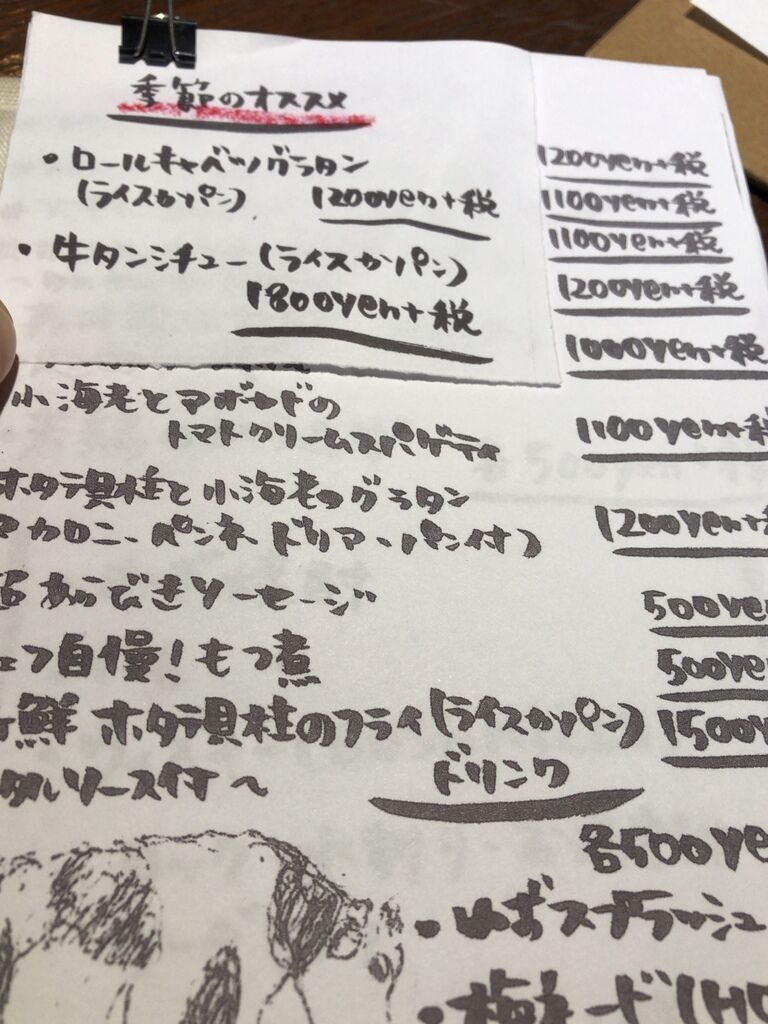 季節のオススメ
・ロールキャベツグラタン
(ライスかパン) 1200yen+税
・牛タンシチュー(ライスかパン)
1800yen+税
1200yen+税
1100yen+税
1100yen+税
1200yen+税
1000yen+税
小海老とアボカドの
トマトクリームスパゲティ 1100yen+税
ホタテ貝柱と小海老のグラタン
マカロニ・ペンネ・ドリア・パン付) 1200yen+
あらびきソーセージ 500ye
ェフ自慢!もつ煮 500ye
鮮 ホタテ貝柱のフライ(ライスかパン) 1500y
タルソース付〜
ドリンク
各500ye
・ゆずスプラッシュ
・梅